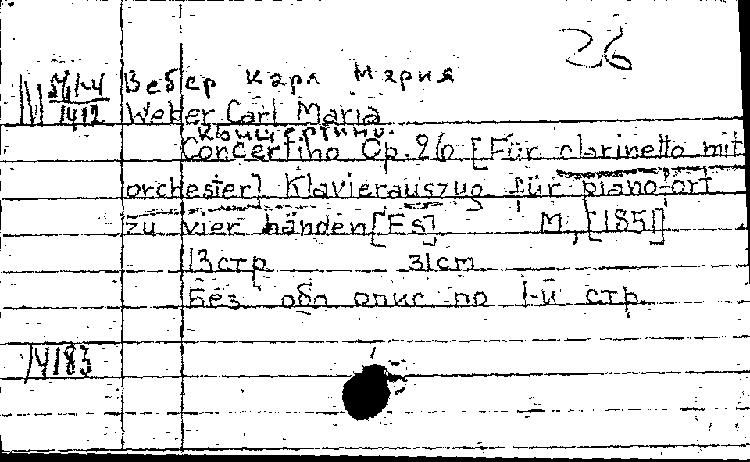 26
Вебер Карл Мария
1412 Weber Carl Maria
Концертино.
Concertino Op. 26 [Für clarinetto mit
orchester] Klavierauszug für piano-fort
zu vier händen [Es] M, [1851]
13 стр 31cm
Без обл опис по 1-й стр.
14183